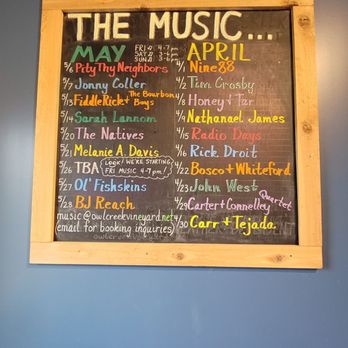 THE MUSIC...
MAY
FRI 4-7pm
SAT 3-6p
SUN 3-6p
5/6 Pity Thy Neighbors
5/7 Jonny Coller
5/13 Fiddle Rick + The Bourbon Boys
5/14 Sarah Lannom
5/20 The Natives
5/21 Melanie A. Davis
5/26 TBA LOOK! WE'RE STARTING FRI MUSIC 4-7pm!
5/27 Ol' Fishskins
5/28 BJ Reach
music@owlcreekvineyard.net
(email for booking inquiries)
APRIL
4/1 Nine88
4/2 Tim Crosby
4/8 Honey + Tar
4/9 Nathanael James
4/15 Radio Days
4/16 Rick Droit
4/22 Bosco + Whiteford
4/23 John West
4/29 Carter + Connelley Quartet
4/30 Carr + Tejada